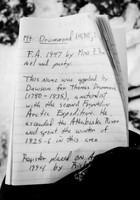 Mt. Drummond
F.A. 1947 by Miss
and party.
This name was applied by
Dawson for Thomas Drummond
(1780 - 1835), a naturalist
with the second Franklin
Arctic Expedition. He
ascended the Athabaska River
and spent the winter of
1825-6 in this area
Register placed on
by